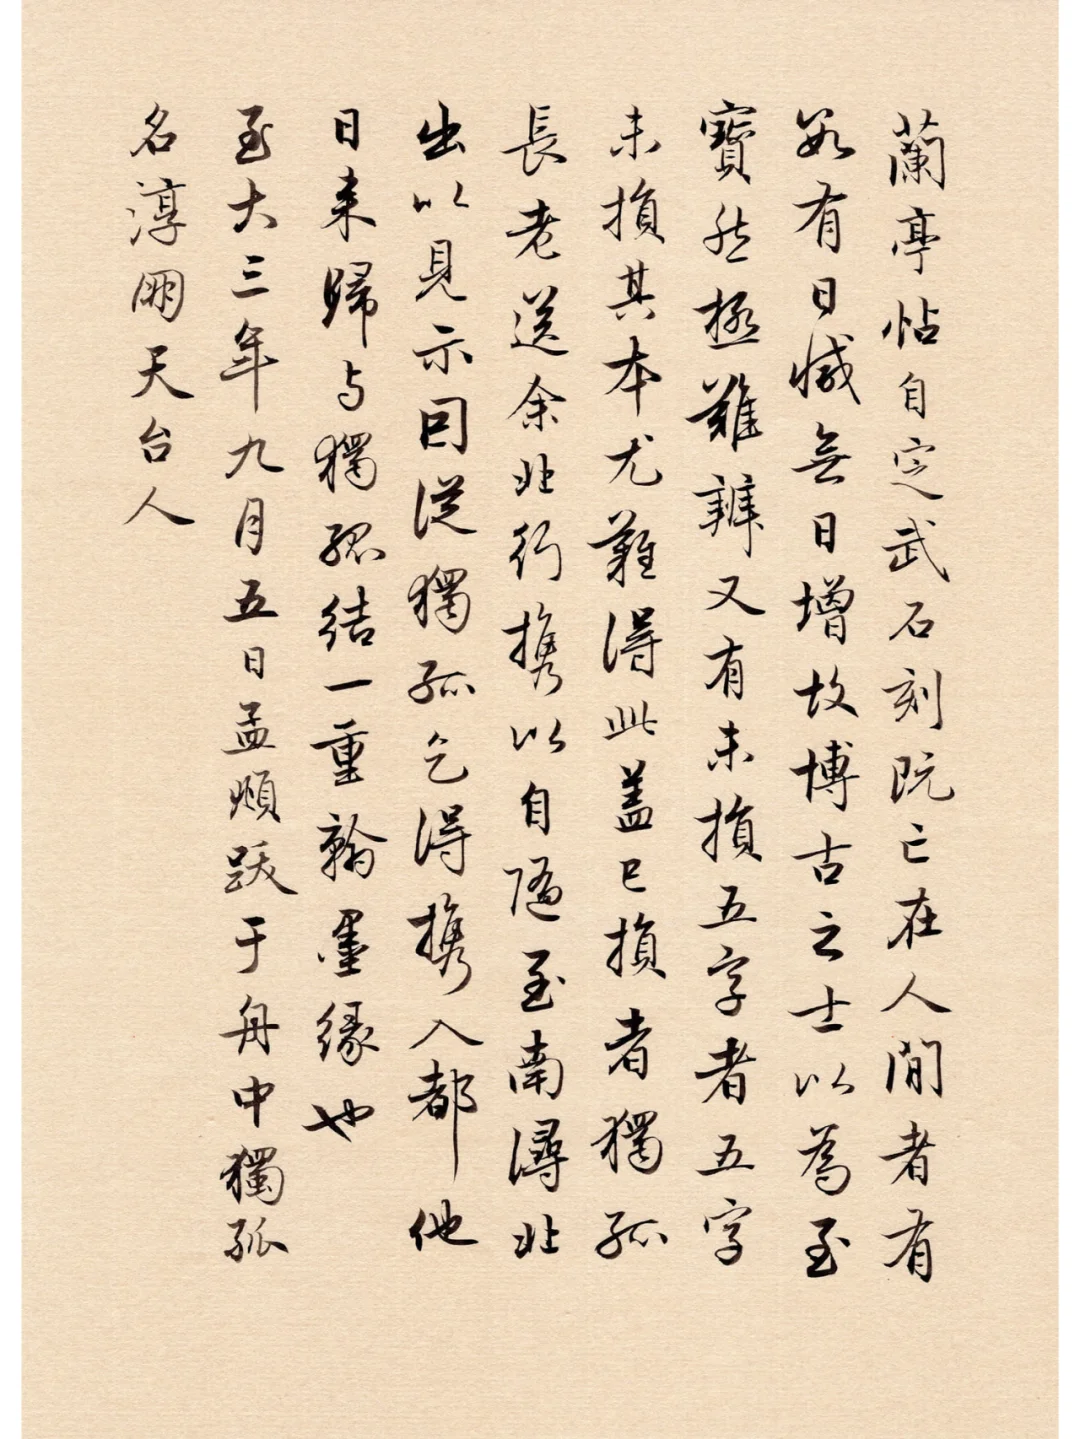 蘭亭帖自定武石刻既亡在人間者有
數有日減無日增故博古之士以為至
寶然極難辨又有未損五字者五字
未損其本尤難得此蓋已損者獨孤
長老送余北行携以自隨至南潯北
出以見示因從獨孤乞得携入都他
日来歸与獨孤結一重翰墨緣也
至大三年九月五日孟頫跋于舟中獨孤
名淳朋天台人